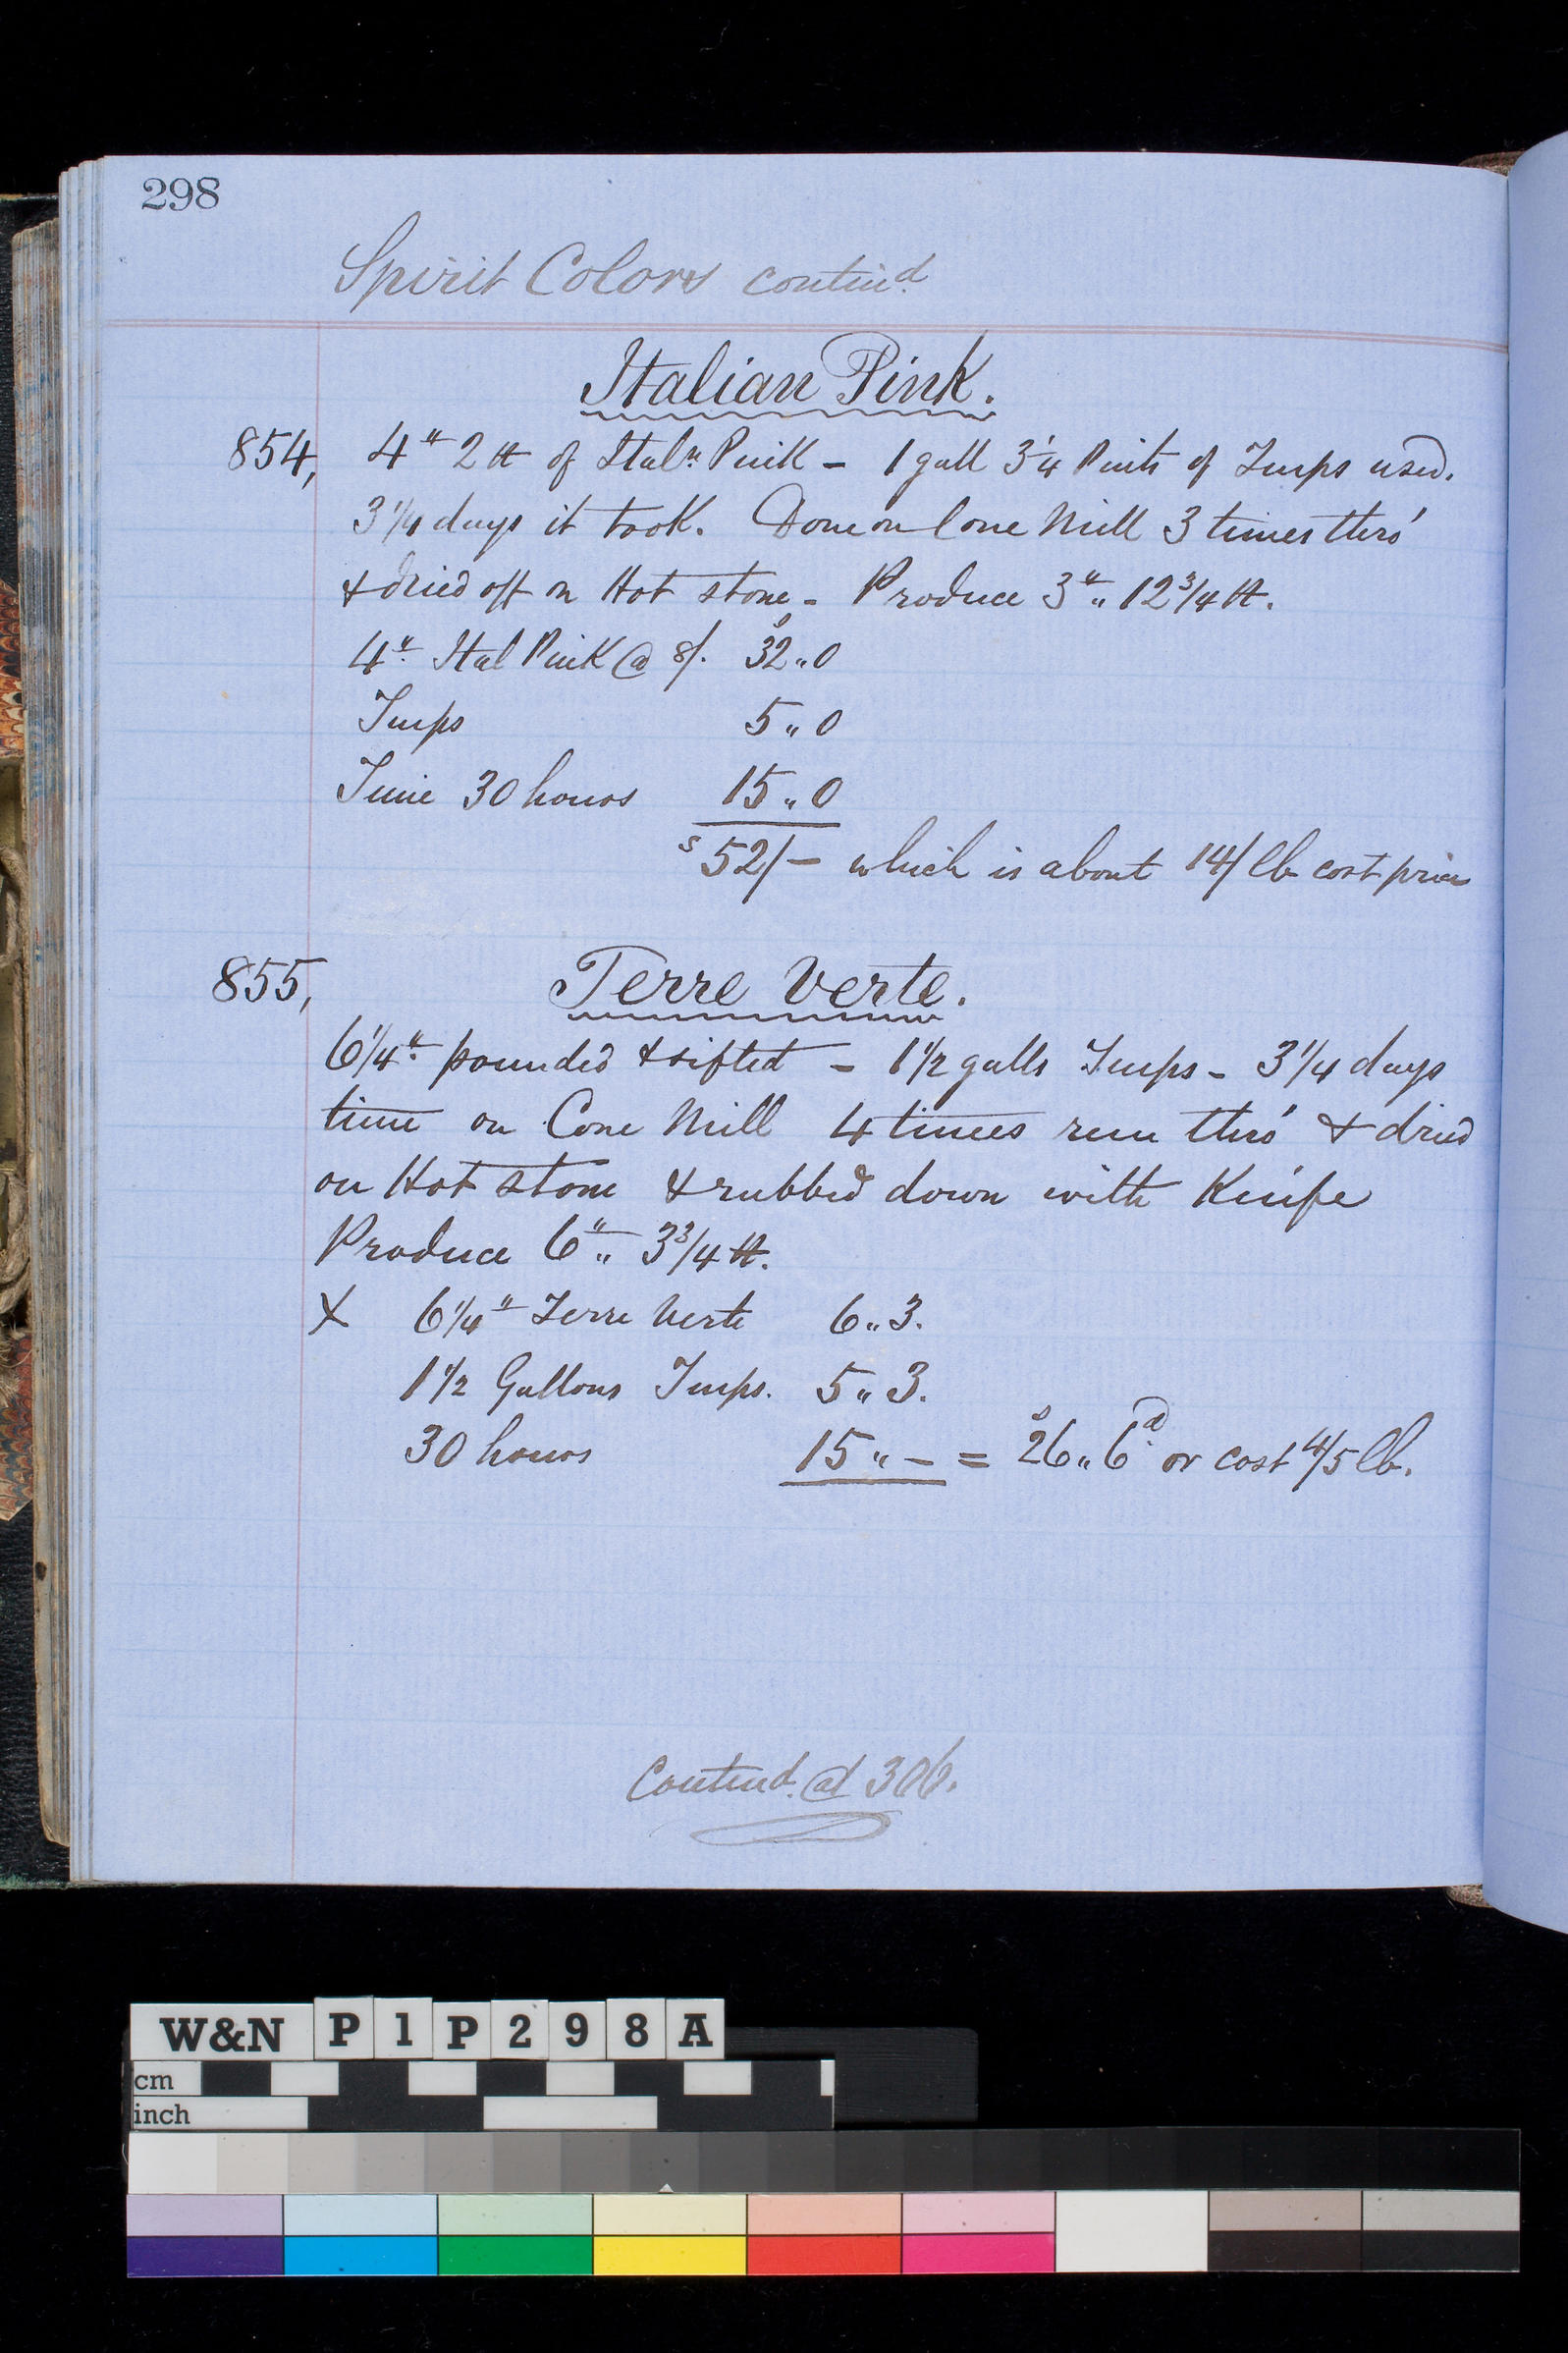 298
Spirit Colors contin.d
Italian Pink.
854, 4" 2 ℔ of Ital.n Pink - 1 gall 3 1/4 Pints of Turps used.
3 1/4 days it took. Done on Cone Mill 3 times thro'
& dried off on Hot stone - Produce 3" " 12 3/4 ℔.
4" Ital Pink @ 8/. 32 " 0
Turps 5 " 0
Time 30 hours 15 " 0
s 52/- which is about 14/ lb cost price
855, Terre Verte.
6 1/4" pounded & sifted - 1 1/2 galls Turps - 3 1/4 days
time on Cone Mill 4 times run thro' & dried
on Hot stone & rubbed down with Knife
Produce 6" " 3 3/4 ℔.
X 6 1/4" Terre Verte 6 " 3.
1 1/2 Gallons Turps. 5 " 3.
30 hours 15 " - = s 26 " 6 d or cost 4/5 lb.
Contind. @ 306.
W&N P1P298A
cm
inch